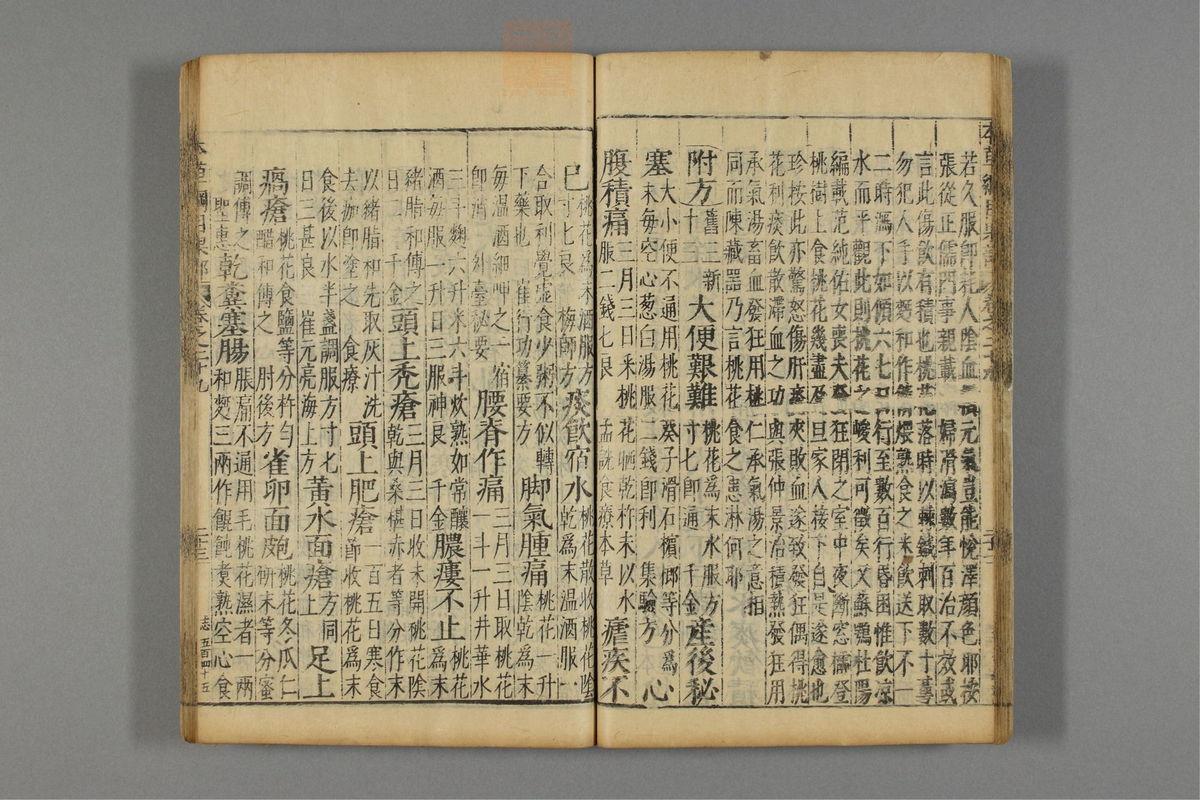 若久服卽耗人陰血損元氣豈能悅澤顏色耶按
張從正儒門事親載一婦滑瀉數年百治不效或
言此傷飲有積也桃花落時以棘鍼刺取數十萼
勿犯人手以麪和作餅煨熟食之米飲送下不一
二時瀉下如傾六七日行至數百行昏困惟飲凉
水而平觀此則桃花之峻利可徵矣又蘇鶚杜陽
編載范純佑女喪夫發狂閉之室中夜斷窓櫺登
桃樹上食桃花幾盡及旦家人接下自是遂愈也
珍按此亦驚怒傷肝痰夾敗血遂致發狂偶得桃
花利痰飲散滯血之功與張仲景治積熱發狂用
承氣湯畜血發狂用桃仁承氣湯之意相
同而陳藏器乃言桃花食之患淋何耶
附方 舊三新十三 大便艱難 桃花爲末水服方寸七卽通 千金 產後秘
塞 大小便不通用桃花葵子滑石檳榔等分爲末每空心葱白湯服二錢卽利 集驗方 心
腹積痛 三月三日采桃花晒乾杵末以水服二錢七良 孟詵食療本草 瘧疾不
巳 桃花爲末酒服方寸七良 梅師方 痰飲宿水 桃花散收桃花陰乾爲末温酒服一
合取利覺虛食少粥不似轉下藥也 崔行功纂要方 脚氣腫痛 桃花一升陰乾爲末
每温酒細呷之一宿卽消 外臺秘要 腰脊作痛 三月三日取桃花一斗一升井華水
三斗麴六升米六斗炊熟如常釀酒每服一升日三服神良 千金 膿瘻不止 桃花爲末
猪脂和傅之日二 千金 頭上禿瘡 三月三日收未開桃花陰乾與桑椹赤者等分作末
以猪脂和先取灰汁洗去痂卽塗之 食療 頭上肥瘡 一百五日寒食節收桃花爲末
食後以水半盞調服方寸七日三甚良 崔元亮海上方 黃水面瘡 方同上 足上
瘑瘡 桃花食鹽等分杵勻醋和傅之 肘後方 雀卵面皰 桃花冬瓜仁研末等分蜜
調傅之 聖惠 乾糞塞腸 脹痛不通用毛桃花濕者一兩和麪三兩作餛飩煑熟空心食
本草綱目果部 卷之二十九 二十三 志五百四十五